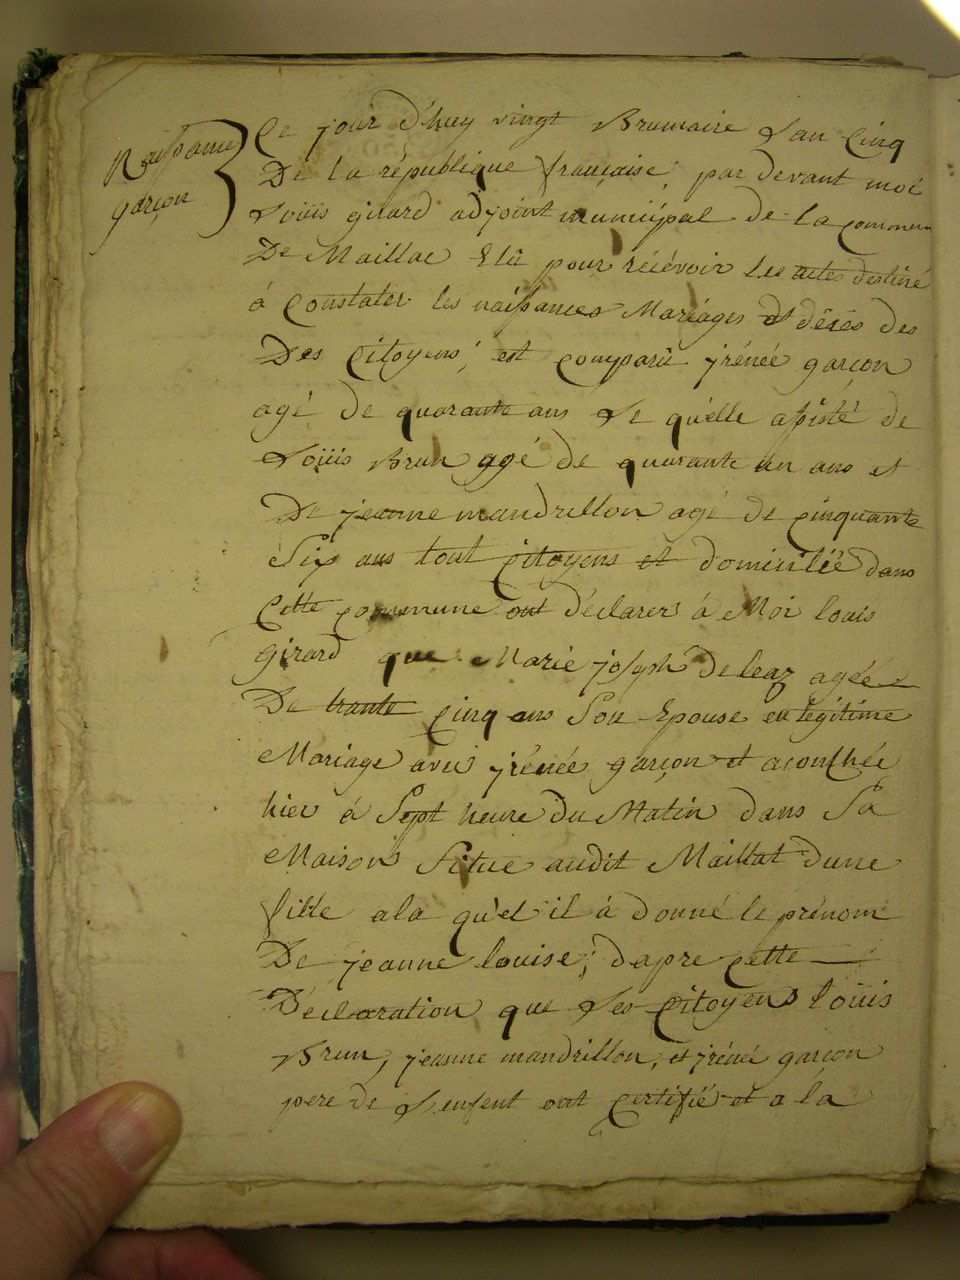 Naissance
garçon
Ce jour d'huy vingt Brumaire L'an Cinq
De la république française; par devant moi
Loüis girard adjoint municipal de la commune
De Maillac Elû pour récévoir les actes destiné
á Constater les naissances Mariages et désés des
Des Citoyens; est comparû jrénée garçon
agé de quarante ans Le quélle assisté de
Loüis Brun agé de quarante un ans et
De jeanne mandrillon agé de cinquante
Six ans tout citoyens et domiciliée dans
Cette commune ont déclarer á Moi louis
girard que Marie joseph Deleaz agée
De trante cinq ans Son Epouse en légitime
Mariage avec jrénée garçon et acouchée
hier á Sept heure du Matin dans Sa
Maison Situe audit Maillat dune
fille ala qu'el il á donné le prénom
De jeanne louise; dapre cette
Déclaration que Les Citoyens loüis
Brun, jeanne mandrillon, et jréné garçon
pere de L'enfent ont Certifié et a la